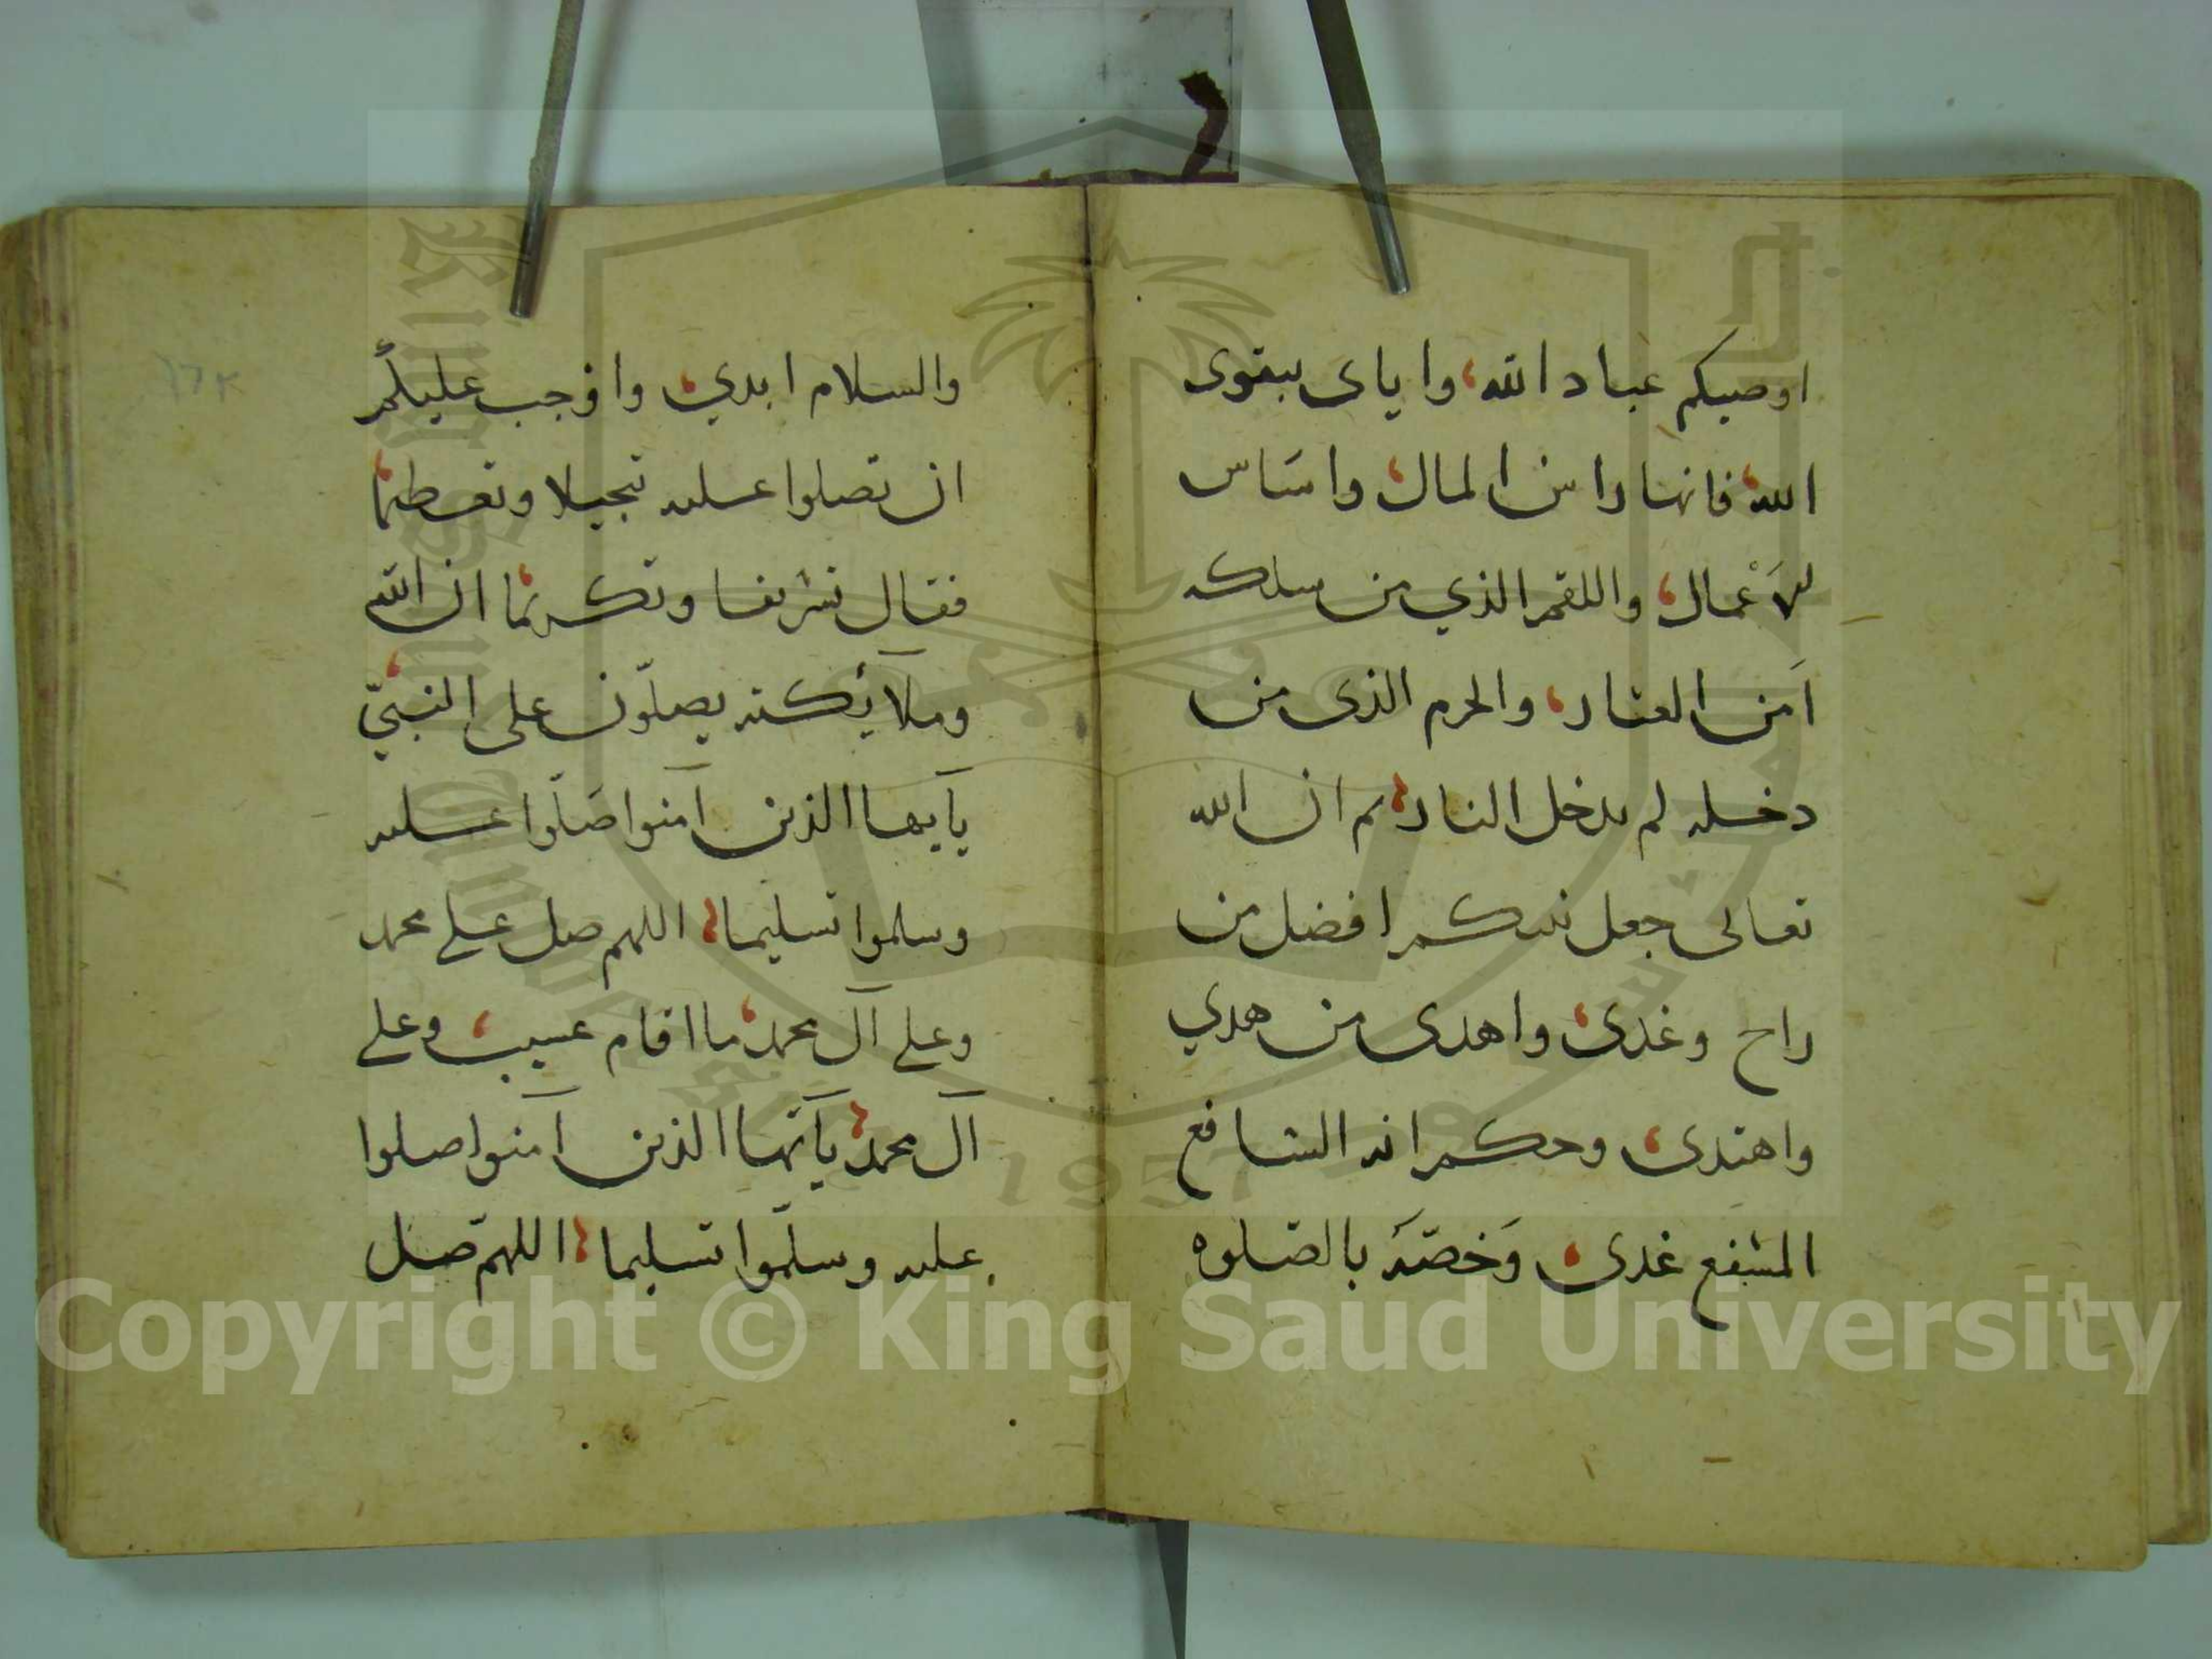 اوصيكم عباد الله، واياى بتقوى
الله، فانها راس المال، واسَاس
الاَعْمال، واللقم الذي من سلكه
اَمن العثار، والحرم الذى من
دخله لم يدخل النار، ثم ان الله
تعالى جعل نبيكم افضل من
راح وغدى، واهدى من هدي
واهتدى، وحكم انه الشافع
المشفع غدى، وَخصّهَ بالصّلوه
والسلام ابدي، واوجب عليكم
ان تصلوا عليه تبجيلا وتعظيما،
فقال تشريفا وتكريما، ان الله
وملآئكته يصلّون على النبيّ،
يآيها الذين آمنوا صَلّوا عليه
وسلموا تسليما، اللهم صل على محمد
وعلى آل محمد، ما اقام عسيب، وعلى
آل محمد، يآيّها الذين آمنوا صلوا
عليه وسلّموا تسليما، اللهم صّل
١٦٢
Copyright © King Saud University
1957